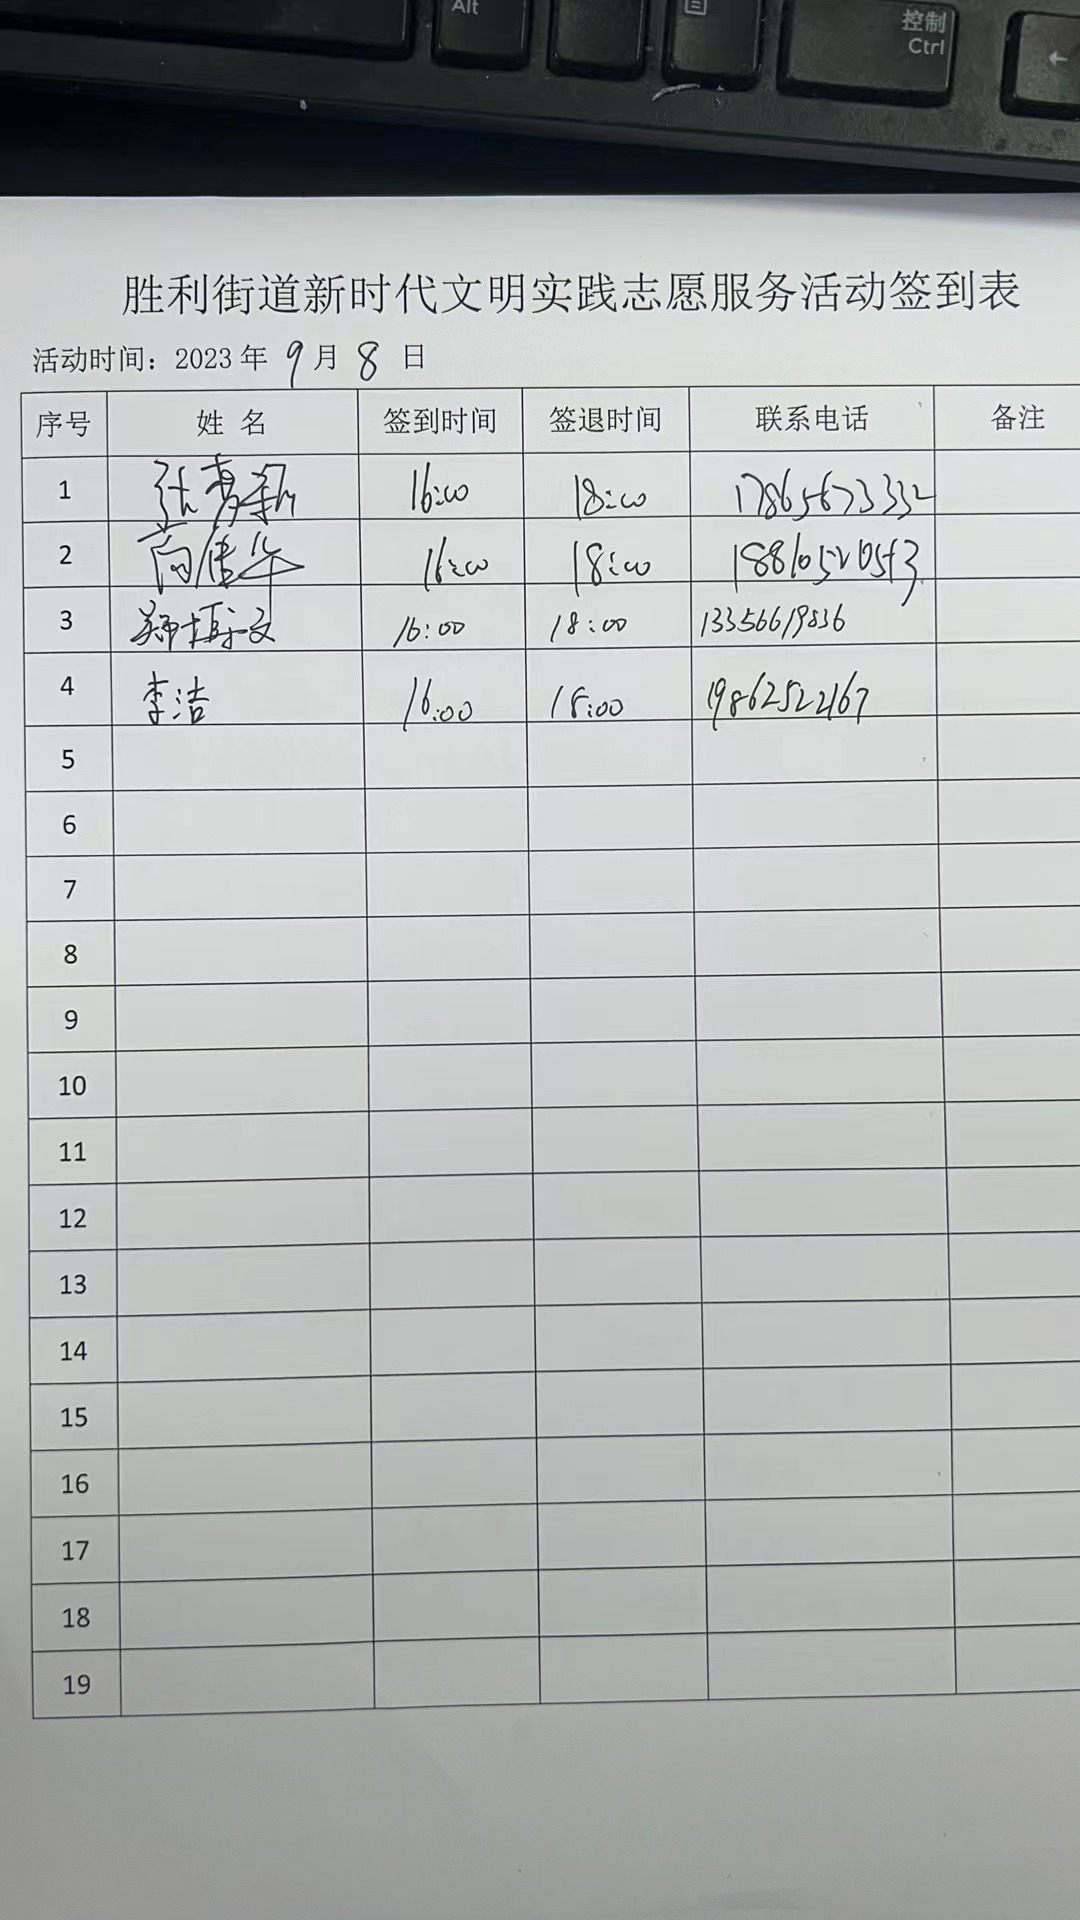 Alt
控制
Ctrl
←
胜利街道新时代文明实践志愿服务活动签到表
活动时间：2023年 9月 8 日
序号 姓 名 签到时间 签退时间 联系电话 备注
1 张 16:00 18:00 17865673332
2 向佳华 16:00 18:00
3 郑博文 16:00 18:00 13356619836
4 李洁 16:00 18:00 19862522167
5
6
7
8
9
10
11
12
13
14
15
16
17
18
19